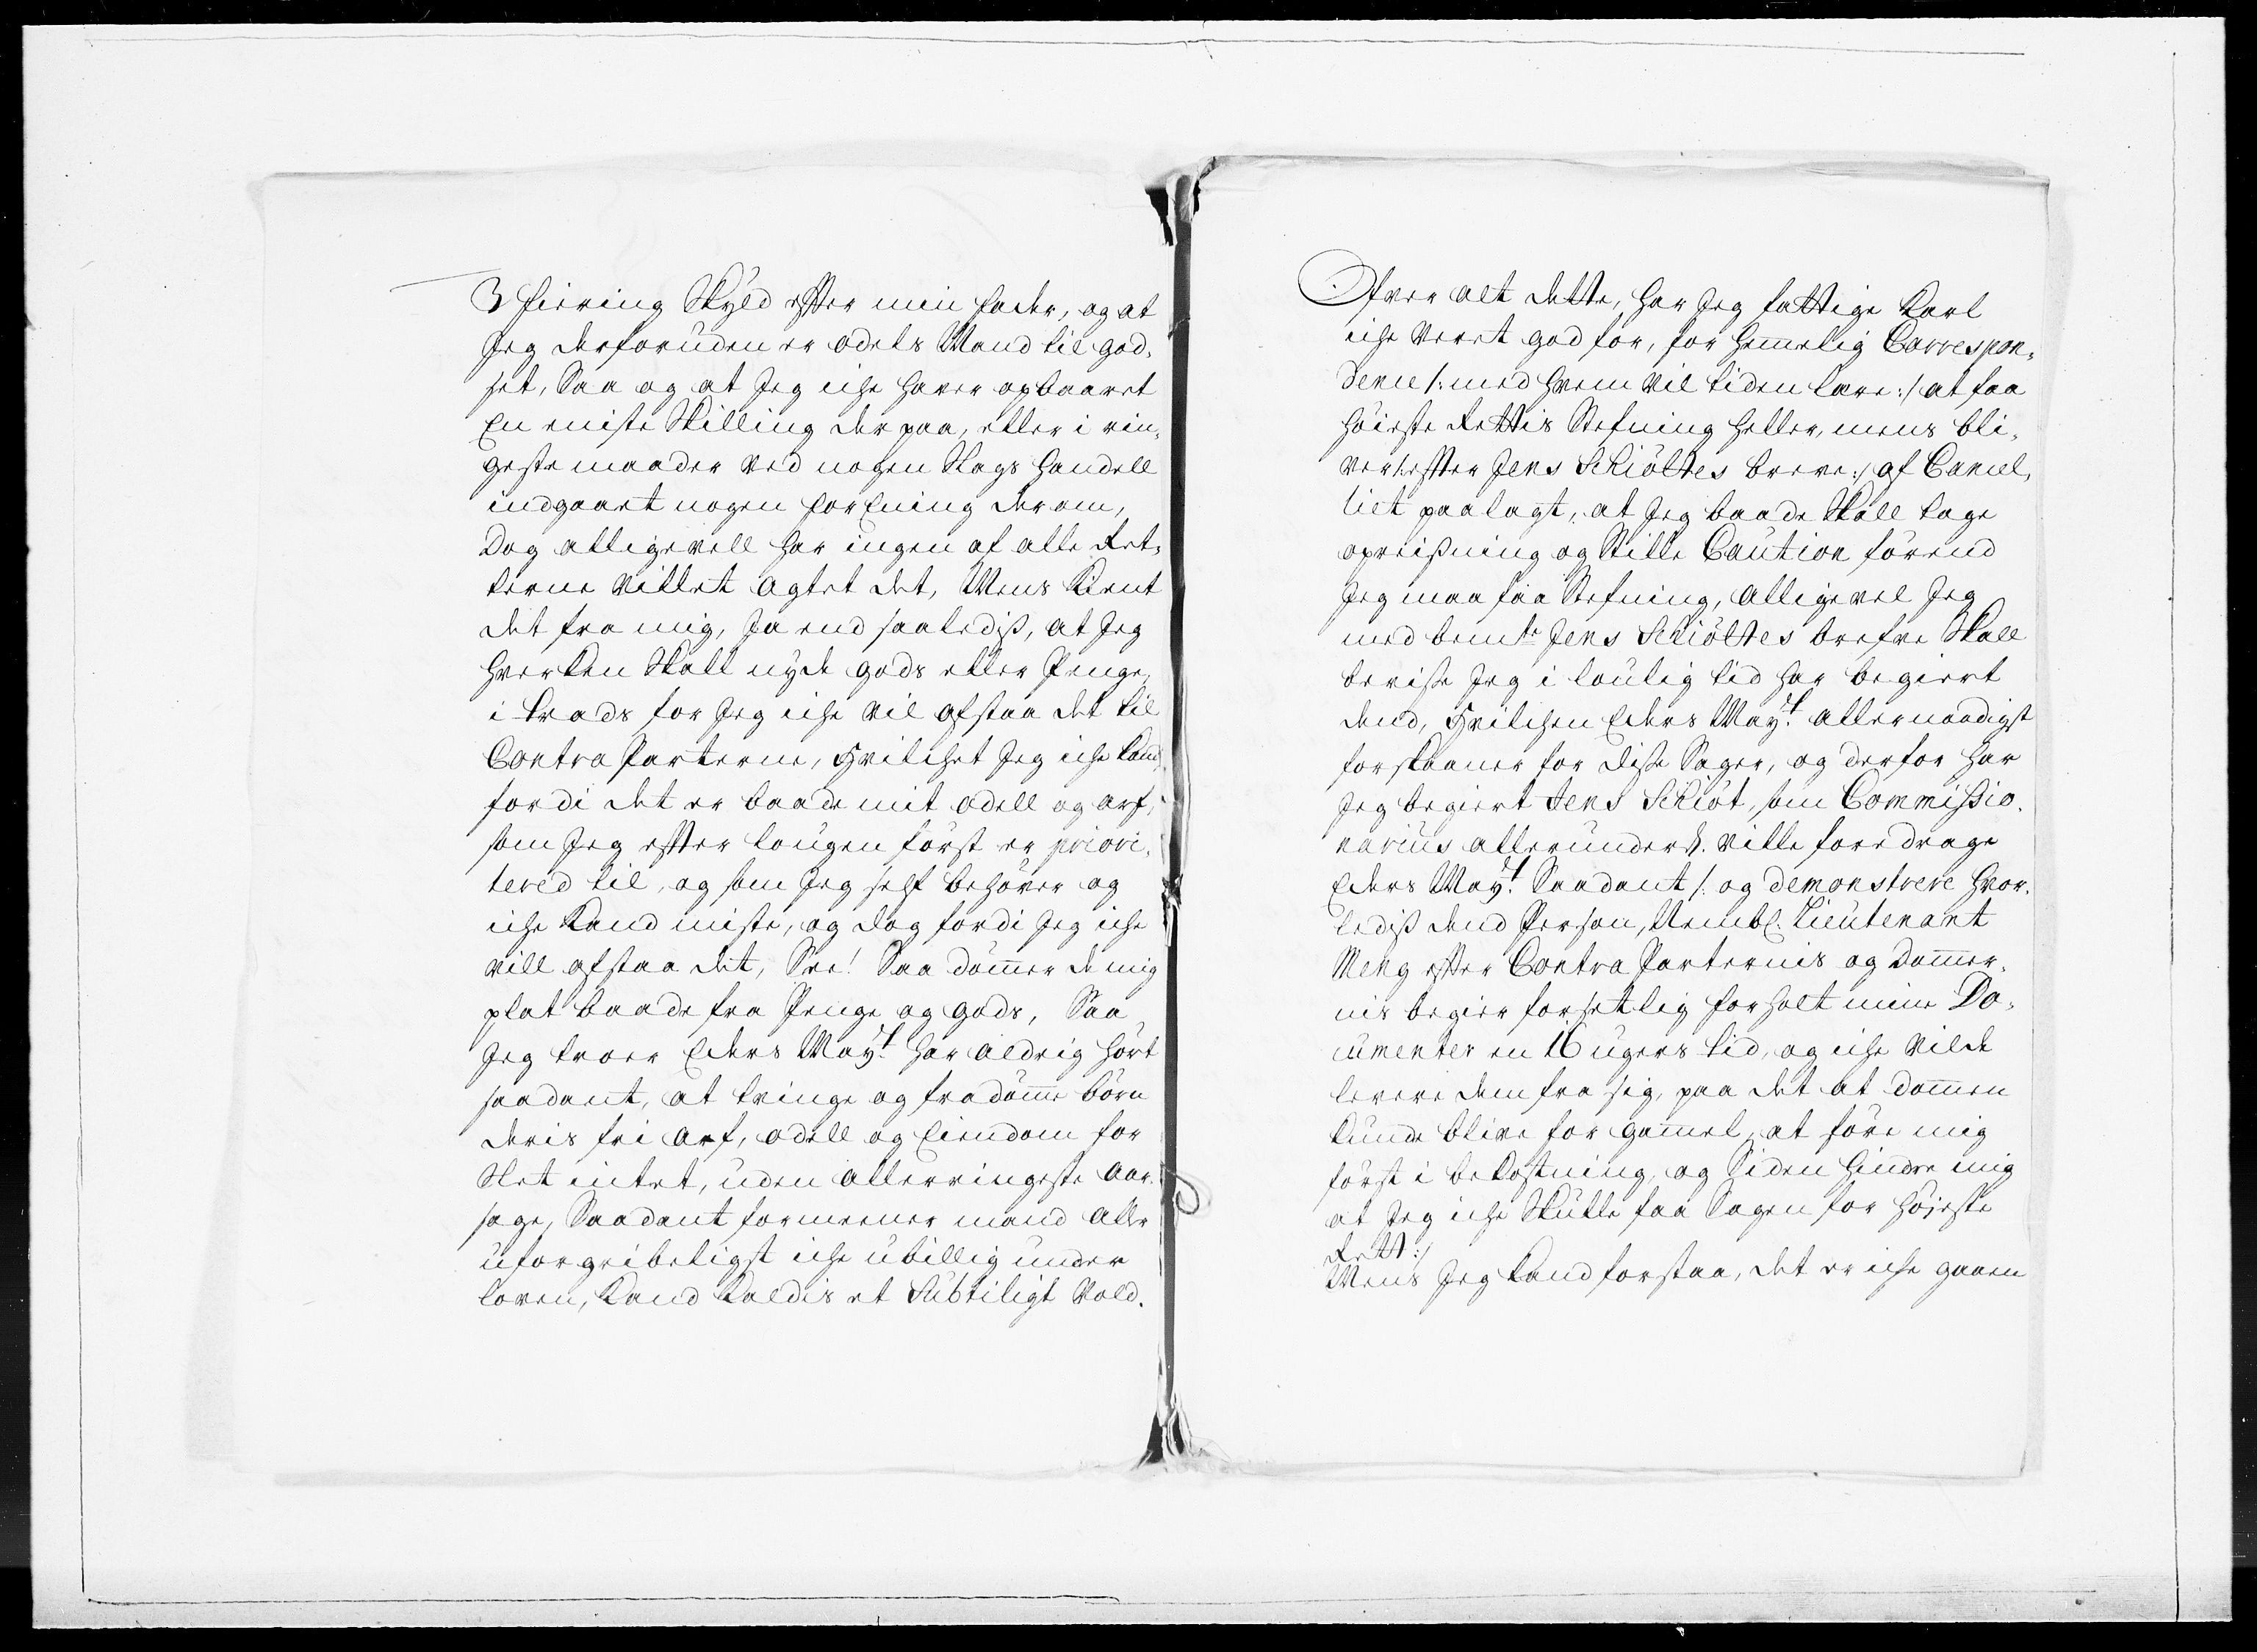 3 fiering Skyld efter min fader, og at
Jeg derforuden er odels Mand til god¬
set, Saa og at Jeg iche haver opbaaret
En eniste Skilling der paa, eller i rin¬
geste maader ved nogen Slags handell
indgaaet nogen forEning der om,
Dog alligevell har ingen af alle Ret¬
terne villet agtet det, Mens Kient
det fra mig, Ja end saaledis, at Jeg
hverken Skall nyde gods eller Penge,
i trads for Jeg iche vil afstaa det til
Contra Parterne, Hvilchet Jeg iche kand,
fordi det er baade mit odell og arf,
som Jeg efter lougen først er priori¬
tered til, og som Jeg self behøver og
iche Kand miste, og dog fordi Jeg iche
vill afstaa det, See! Saa dømmer de mig
plat baade fra Penge og gods, Saa
Jeg troer Eders May:t har aldrig hørt
saadant, at tvinge og fradømme børn
deris fri Arf, odell og Eiendom for
Slet intet, uden allerringeste aar¬
sage, Saadant formeener mand aller
uforgribeligst iche ubillig under
loven, Kand Kaldis et Subtiligt Vold.
Ofver alt dette, har Jeg fattige Karl
iche veret god for, for hemmelig Correspon¬
dence /: med hvem vil tiden lære :/ at faa
høieste Rettis Stefning heller, mens bli¬
ver /: efter Jens Schiøttes breve :/ af Cancel¬
liet paalagt, at Jeg baade Skall tage
opreisning og Stille Caution førend
Jeg maa faa Stefning, Alligevel Jeg
med bemte Jens Schiøttes brefve Skall
bevise Jeg i loulig tid har begiert
dend, Hvilchen Eders May:t allernaadigst
forskaaner for disse Sager, og derfor har
Jeg begiert Jens Schiøt, som Commissio¬
narius allerunderd. ville foredrage
Eders May:t Saadant /: og demonstrere hvor¬
ledis dend Person, Nembl. Lieutenant
Meng efter Contra Parternis og Dommer¬
nis begier forsetlig forholt mine Do¬
cumenter en 16 ugers tid, og iche vilde
levere dem fra sig, paa det at dommen
kunde blive for gammel, at føre mig
først i bekostning, og Siden hindre mig
at Jeg iche Skulle faa Sagen for højeste
Rett :/
Mens Jeg kand forstaa, det er iche gaaen